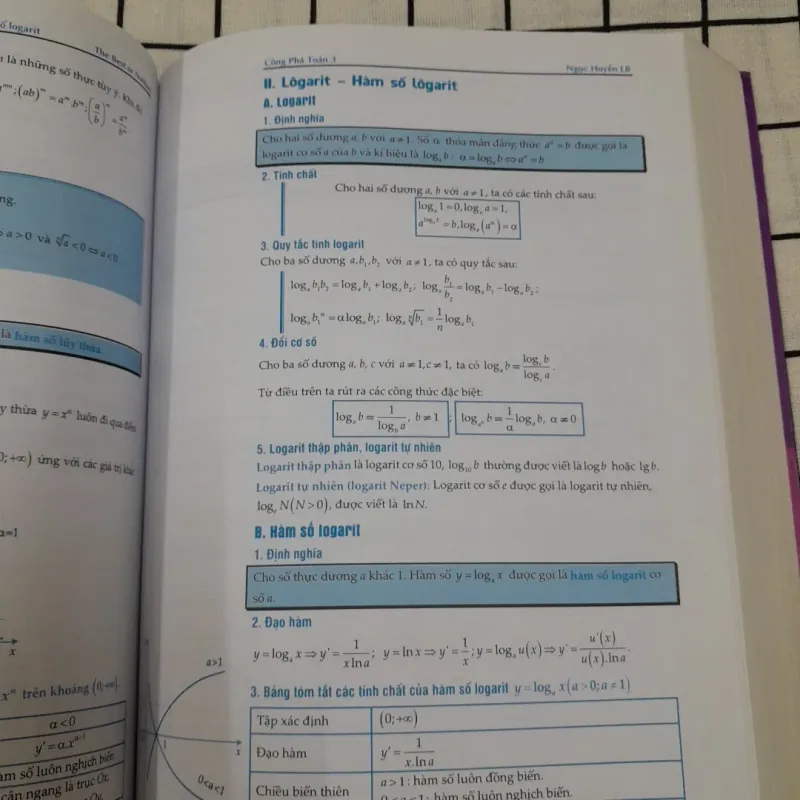 số logarit
The Best or Nothing
là những số thực tùy ý. Khi đó:
(ab)^m = a^m.b^m; (a/b)^m = a^m/b^m
a > 0 và ⁿ√a < 0 ⇔ a < 0
là hàm số lũy thừa.
y thừa y = x^α luôn đi qua điểm
0; +∞) ứng với các giá trị khác
α=1
x
x^α trên khoảng (0; +∞).
α < 0
y' = α.x^(α-1)
àm số luôn nghịch biến.
cận ngang là trục Ox,
Công Phá Toán 3
Ngọc Huyền LB
II. Lôgarit – Hàm số lôgarit
A. Logarit
1. Định nghĩa
Cho hai số dương a, b với a ≠ 1. Số α thỏa mãn đẳng thức a^α = b được gọi là
logarit cơ số a của b và kí hiệu là log_a b: α = log_a b ⇔ a^α = b
2. Tính chất
Cho hai số dương a, b với a ≠ 1, ta có các tính chất sau:
log_a 1 = 0, log_a a = 1,
a^(log_a b) = b, log_a (a^α) = α
3. Quy tắc tính logarit
Cho ba số dương a, b₁, b₂ với a ≠ 1, ta có quy tắc sau:
log_a b₁b₂ = log_a b₁ + log_a b₂; log_a b₁/b₂ = log_a b₁ − log_a b₂;
log_a b₁^α = α log_a b₁; log_a ⁿ√b₁ = 1/n log_a b₁
4. Đổi cơ số
Cho ba số dương a, b, c với a ≠ 1, c ≠ 1, ta có log_a b = log_c b / log_c a.
Từ điều trên ta rút ra các công thức đặc biệt:
log_a b = 1/log_b a, b ≠ 1; log_(a^α) b = 1/α log_a b, α ≠ 0
5. Logarit thập phân, logarit tự nhiên
Logarit thập phân là logarit cơ số 10, log₁₀ b thường được viết là log b hoặc lg b.
Logarit tự nhiên (logarit Neper): Logarit cơ số e được gọi là logarit tự nhiên,
log_e N (N > 0), được viết là ln N.
B. Hàm số logarit
1. Định nghĩa
Cho số thực dương a khác 1. Hàm số y = log_a x được gọi là hàm số logarit cơ
số a.
2. Đạo hàm
y = log_a x ⇒ y' = 1/(x ln a); y = ln x ⇒ y' = 1/x; y = log_a u(x) ⇒ y' = u'(x)/(u(x).ln a).
a>1
3. Bảng tóm tắt các tính chất của hàm số logarit y = log_a x (a > 0; a ≠ 1)
Tập xác định (0; +∞)
1
x
Đạo hàm y' = 1/(x.ln a)
0<a<1
Chiều biến thiên a > 1 : hàm số luôn đồng biến.
0 < a < 1 : hàm số luôn nghịch biến.